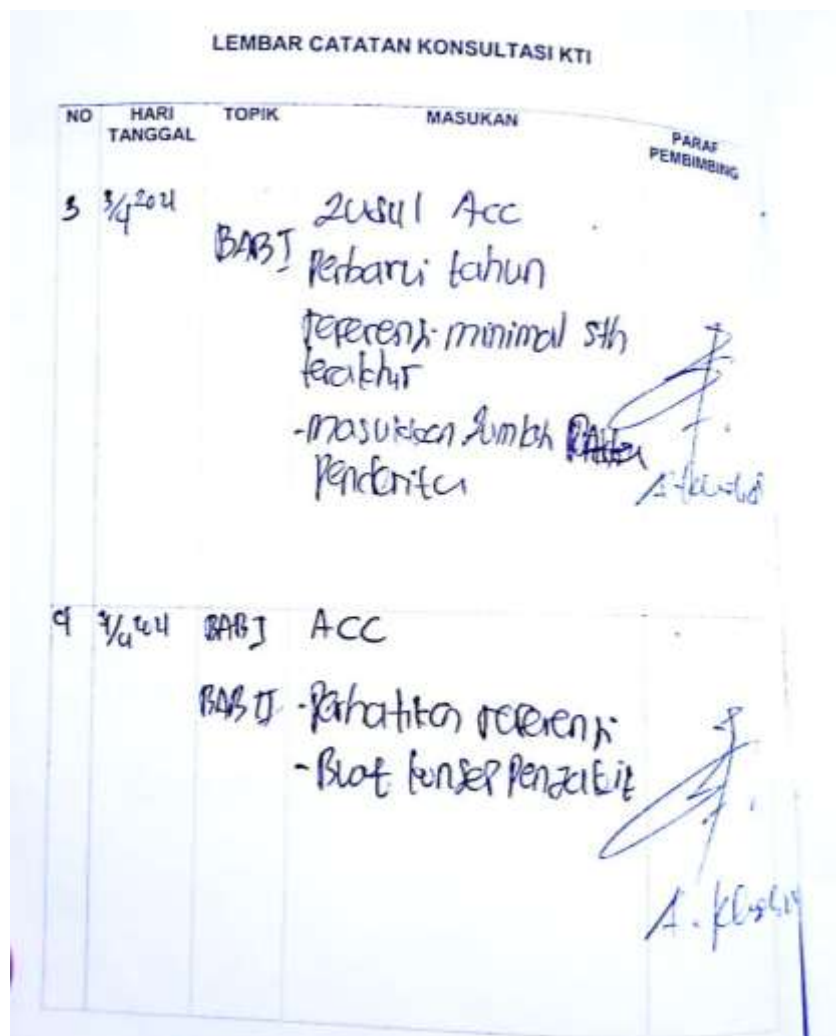 LEMBAR CATATAN KONSULTASI KTI
NO HARI TANGGAL TOPIK MASUKAN PARAF PEMBIMBING
3 3/4 2021 BAB I Judul Acc
Perbarui tahun
referensi minimal 5th
terakhir
-masukkan Jumlah
Penderita
4 BAB I ACC
BAB II -Perhatikan referensi
-Buat konsep Penyakit